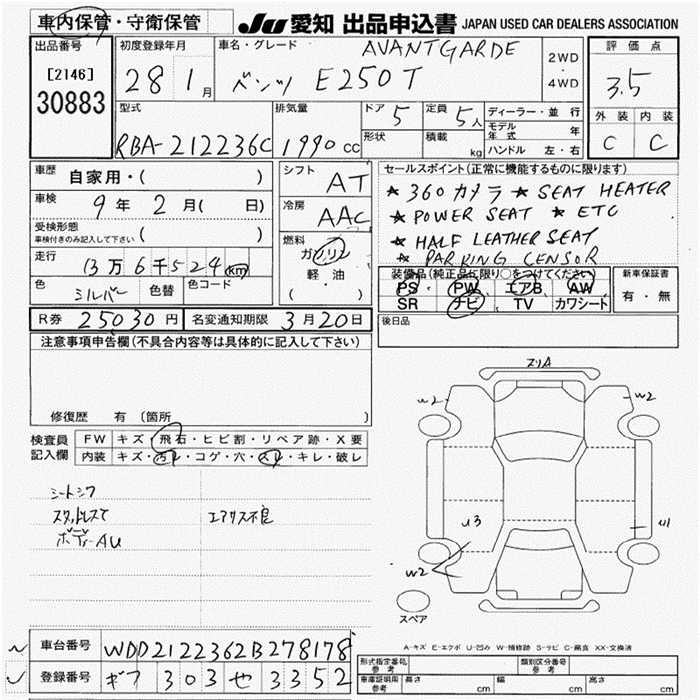 車内保管・守衛保管
JU 愛知 出品申込書 JAPAN USED CAR DEALERS ASSOCIATION
出品番号
[2146]
30883
初度登録年月
28 1月
車名・グレード
AVANTGARDE
ベンツ E250T
2WD
・
4WD
評価点
3.5
外装 内装
C C
型式
RBA-212236C
排気量
1990 cc
ドア 5
定員 5人
形状
積載 kg
ディーラー・並行
モデル年式 年
ハンドル 左・右
車歴
自家用・( )
車検
9年 2月( 日)
受検形態
車検付きのみ記入して下さい ( )
走行
13万6千524km
色 シルバー
色替
色コード
シフト
AT
冷房
AAC
燃料
ガソリン
軽油
( ・ )
セールスポイント(正常に機能するものに限ります)
★ 360カメラ ★ SEAT HEATER
★ POWER SEAT ★ ETC
★ HALF LEATHER SEAT
★ PARKING CENSOR
装備品(純正品に限り○をつけてください)
PS PW エアB AW
SR ナビ TV カワシート
新車保証書
有・無
後日品
R券 25030円 名変通知期限 3月20日
注意事項申告欄(不具合内容等は具体的に記入して下さい)
修復歴 有(箇所 )
検査員記入欄
FW キズ・飛石・ヒビ割・リペア跡・X要
内装 キズ・汚レ・コゲ・穴・スレ・キレ・破レ
シートシワ
スタッドレスて
ボデーAU
エアサス不良
スリA
W2
W2
U3
U1
W2
スペア
A-キズ E-エクボ U-凹み W-補修跡 S-サビ C-腐食 XX-交換済
車台番号 WDD2122362B278178
登録番号 ギフ 303 せ 3352
形式指定番号 参考
類別区分番号 参考
車庫証明用 参考 長さ cm 幅 cm 高さ cm